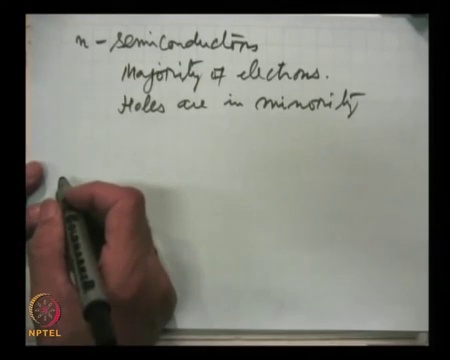 n - semiconductors
Majority of electrons.
Holes are in minority
NPTEL